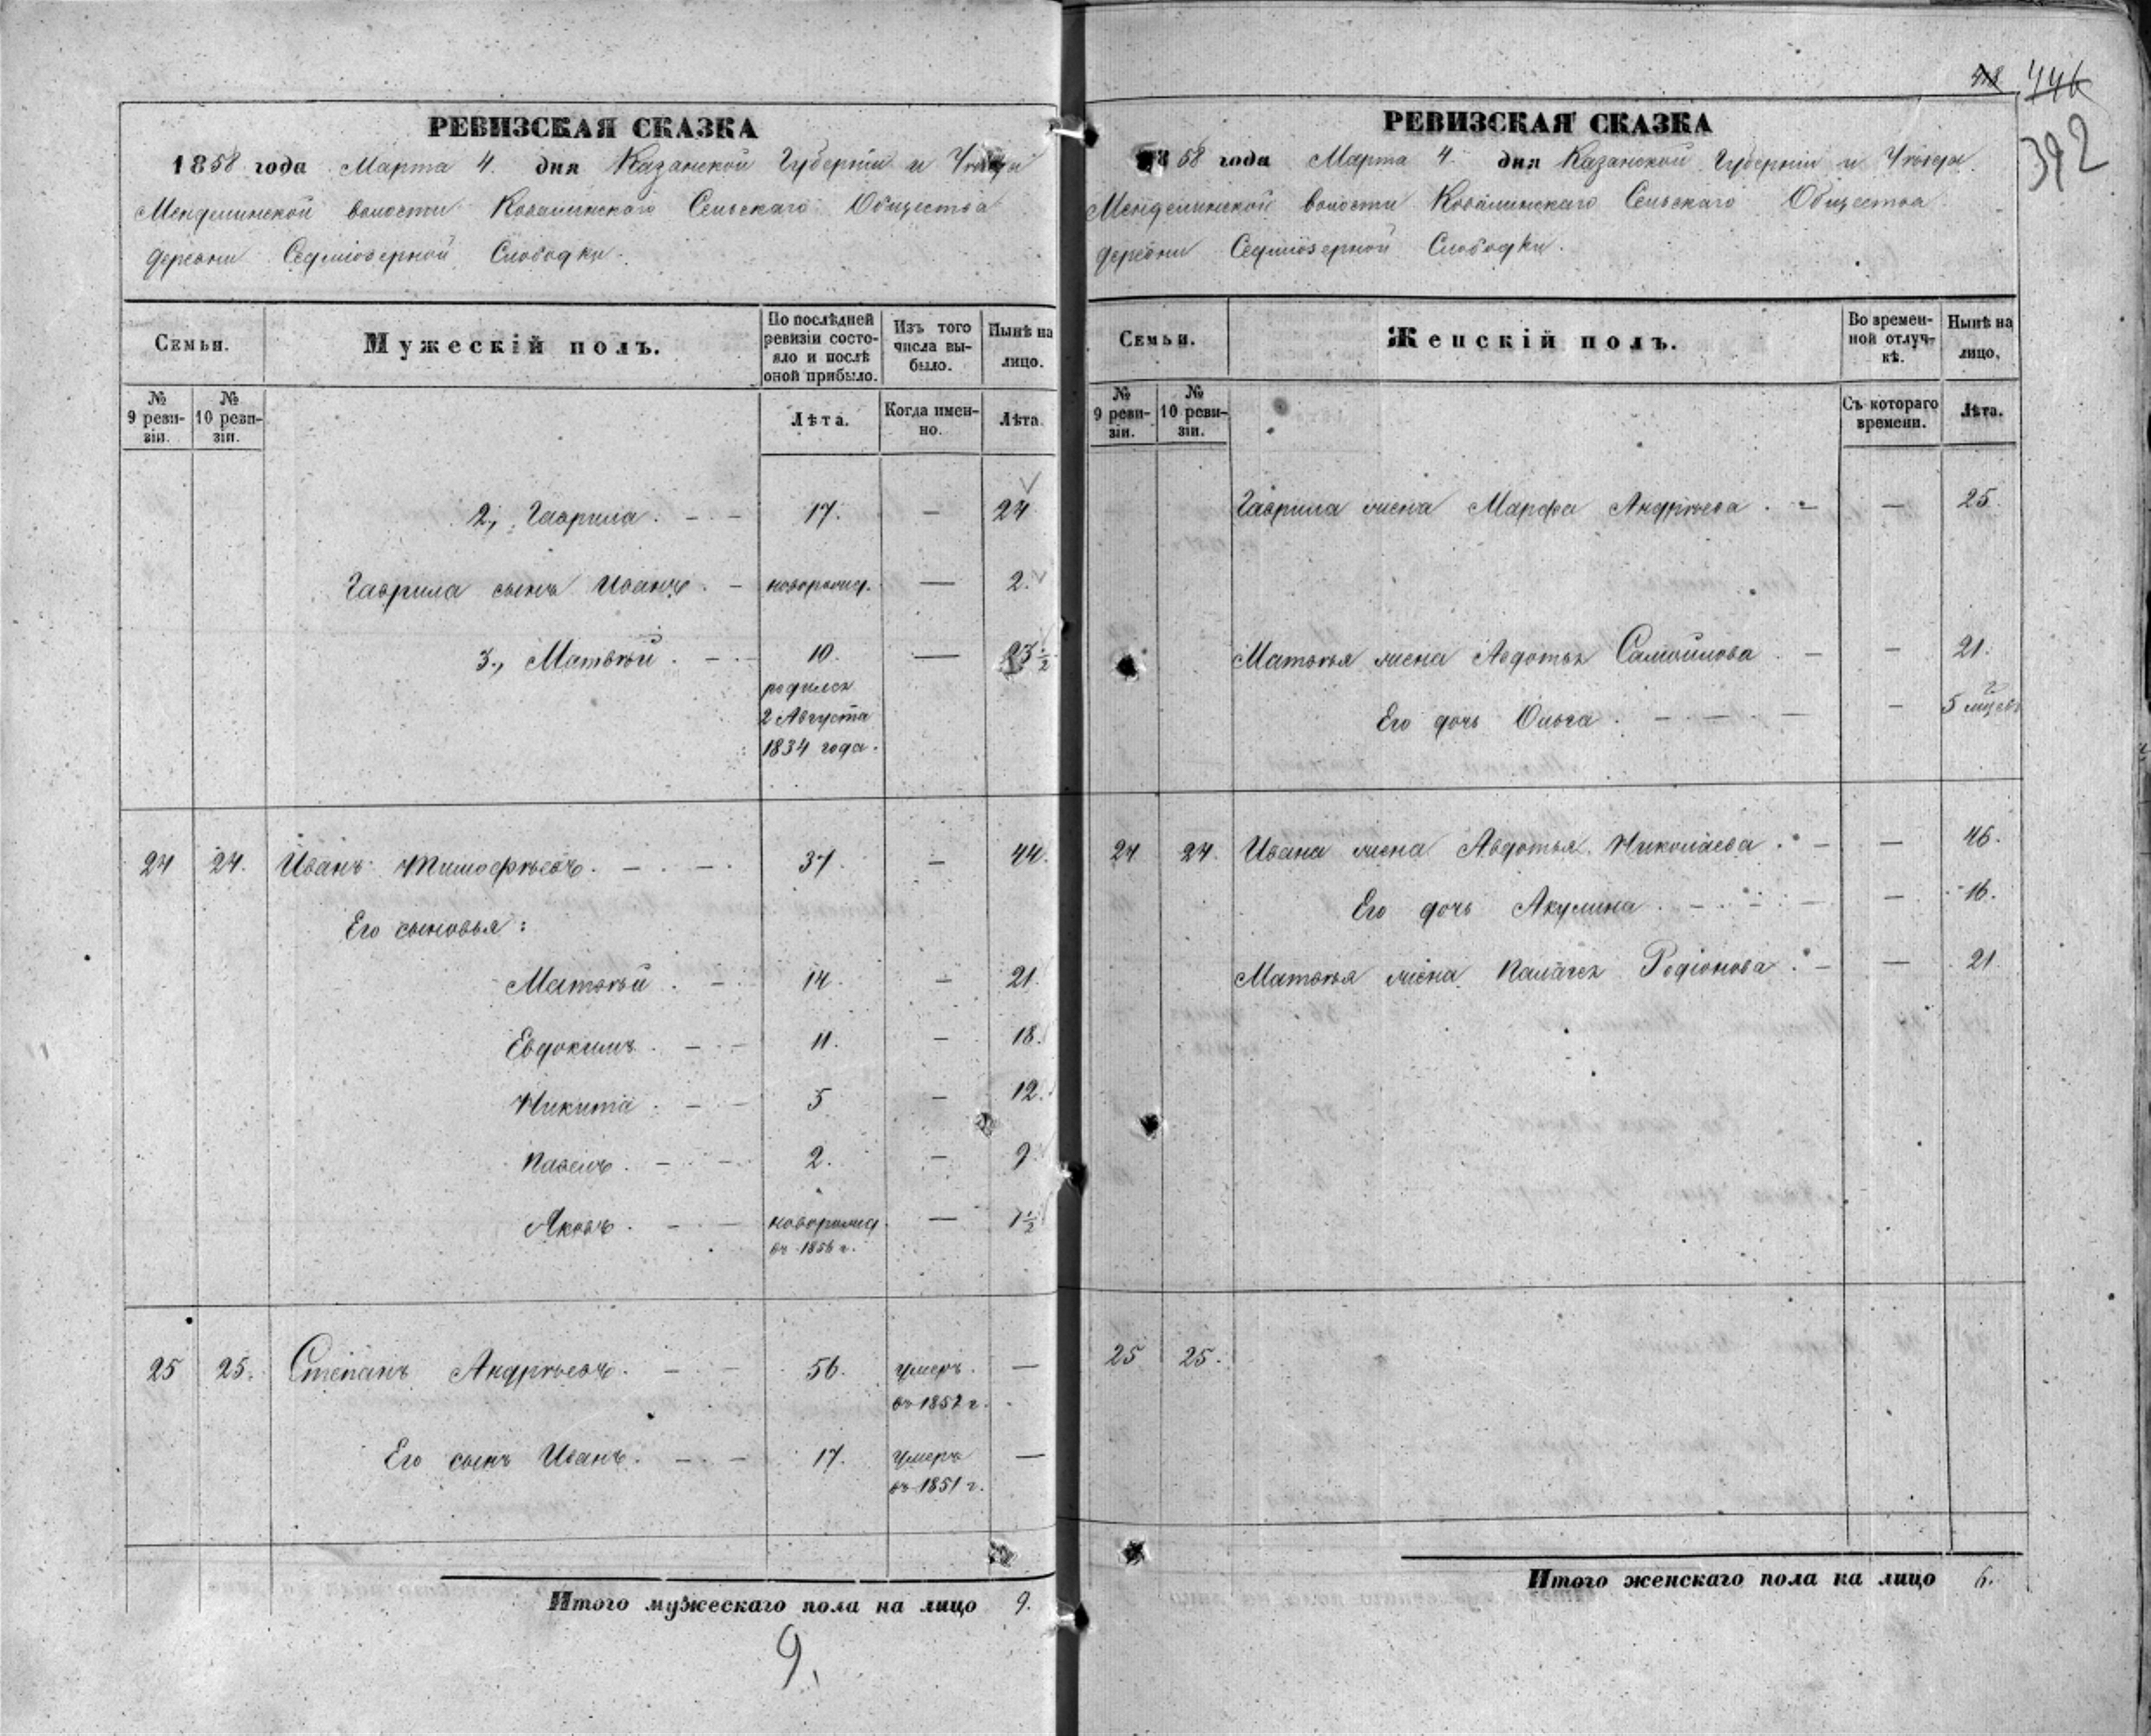 446
392
РЕВИЗСКАЯ СКАЗКА
1858 года Марта 4. дня Казанской Губерніи и Уѣзда
Менделинской волости Ковалинскаго Сельскаго Общества
деревни Седміозерной Слободки.
Семьи.
Мужескій полъ.
По послѣдней ревизіи состояло и послѣ оной прибыло.
Изъ того числа выбыло.
Нынѣ на лицо.
№ 9 ревизіи.
№ 10 ревизіи.
Лѣта.
Когда именно.
Лѣта.
2., Гаврила. — 17. — 24
Гаврила сынъ Иванъ. — новорожд. — 2.
3., Матвѣй. — 10. — 23 1/2
родился
2 Августа
1834 года.
24 24. Иванъ Тимофѣевъ. — 37. — 44.
Его сыновья:
Матвѣй. — 14. — 21.
Евдокимъ. — 11. — 18.
Никита. — 5 — 12.
Павелъ. — 2. — 9.
Яковъ. — новорожд. — 1 1/2
въ 1856 г.
25 25. Степанъ Андрѣевъ. — 56. умеръ. —
въ 1852 г.
Его сынъ Иванъ. — 17. умеръ —
въ 1851 г.
Итого мужескаго пола на лицо 9.
9.
РЕВИЗСКАЯ СКАЗКА
1858 года Марта 4. дня Казанской Губерніи и Уѣзда
Менделинской волости Ковалинскаго Сельскаго Общества
деревни Седміозерной Слободки.
Семьи.
Женскій полъ.
Во временной отлучкѣ.
Нынѣ на лицо.
№ 9 ревизіи.
№ 10 ревизіи.
Съ котораго времени.
Лѣта.
Гаврила жена Марфа Андрѣева. — — 25.
Матвѣя жена Авдотья Самойлова — — 21.
Его дочь Ольга. — — 5 мцевъ
24 24. Ивана жена Авдотья Николаева. — — 46.
Его дочь Акулина. — — 16.
Матвѣя жена Палагея Родіонова. — — 21
25 25.
Итого женскаго пола на лицо 6.